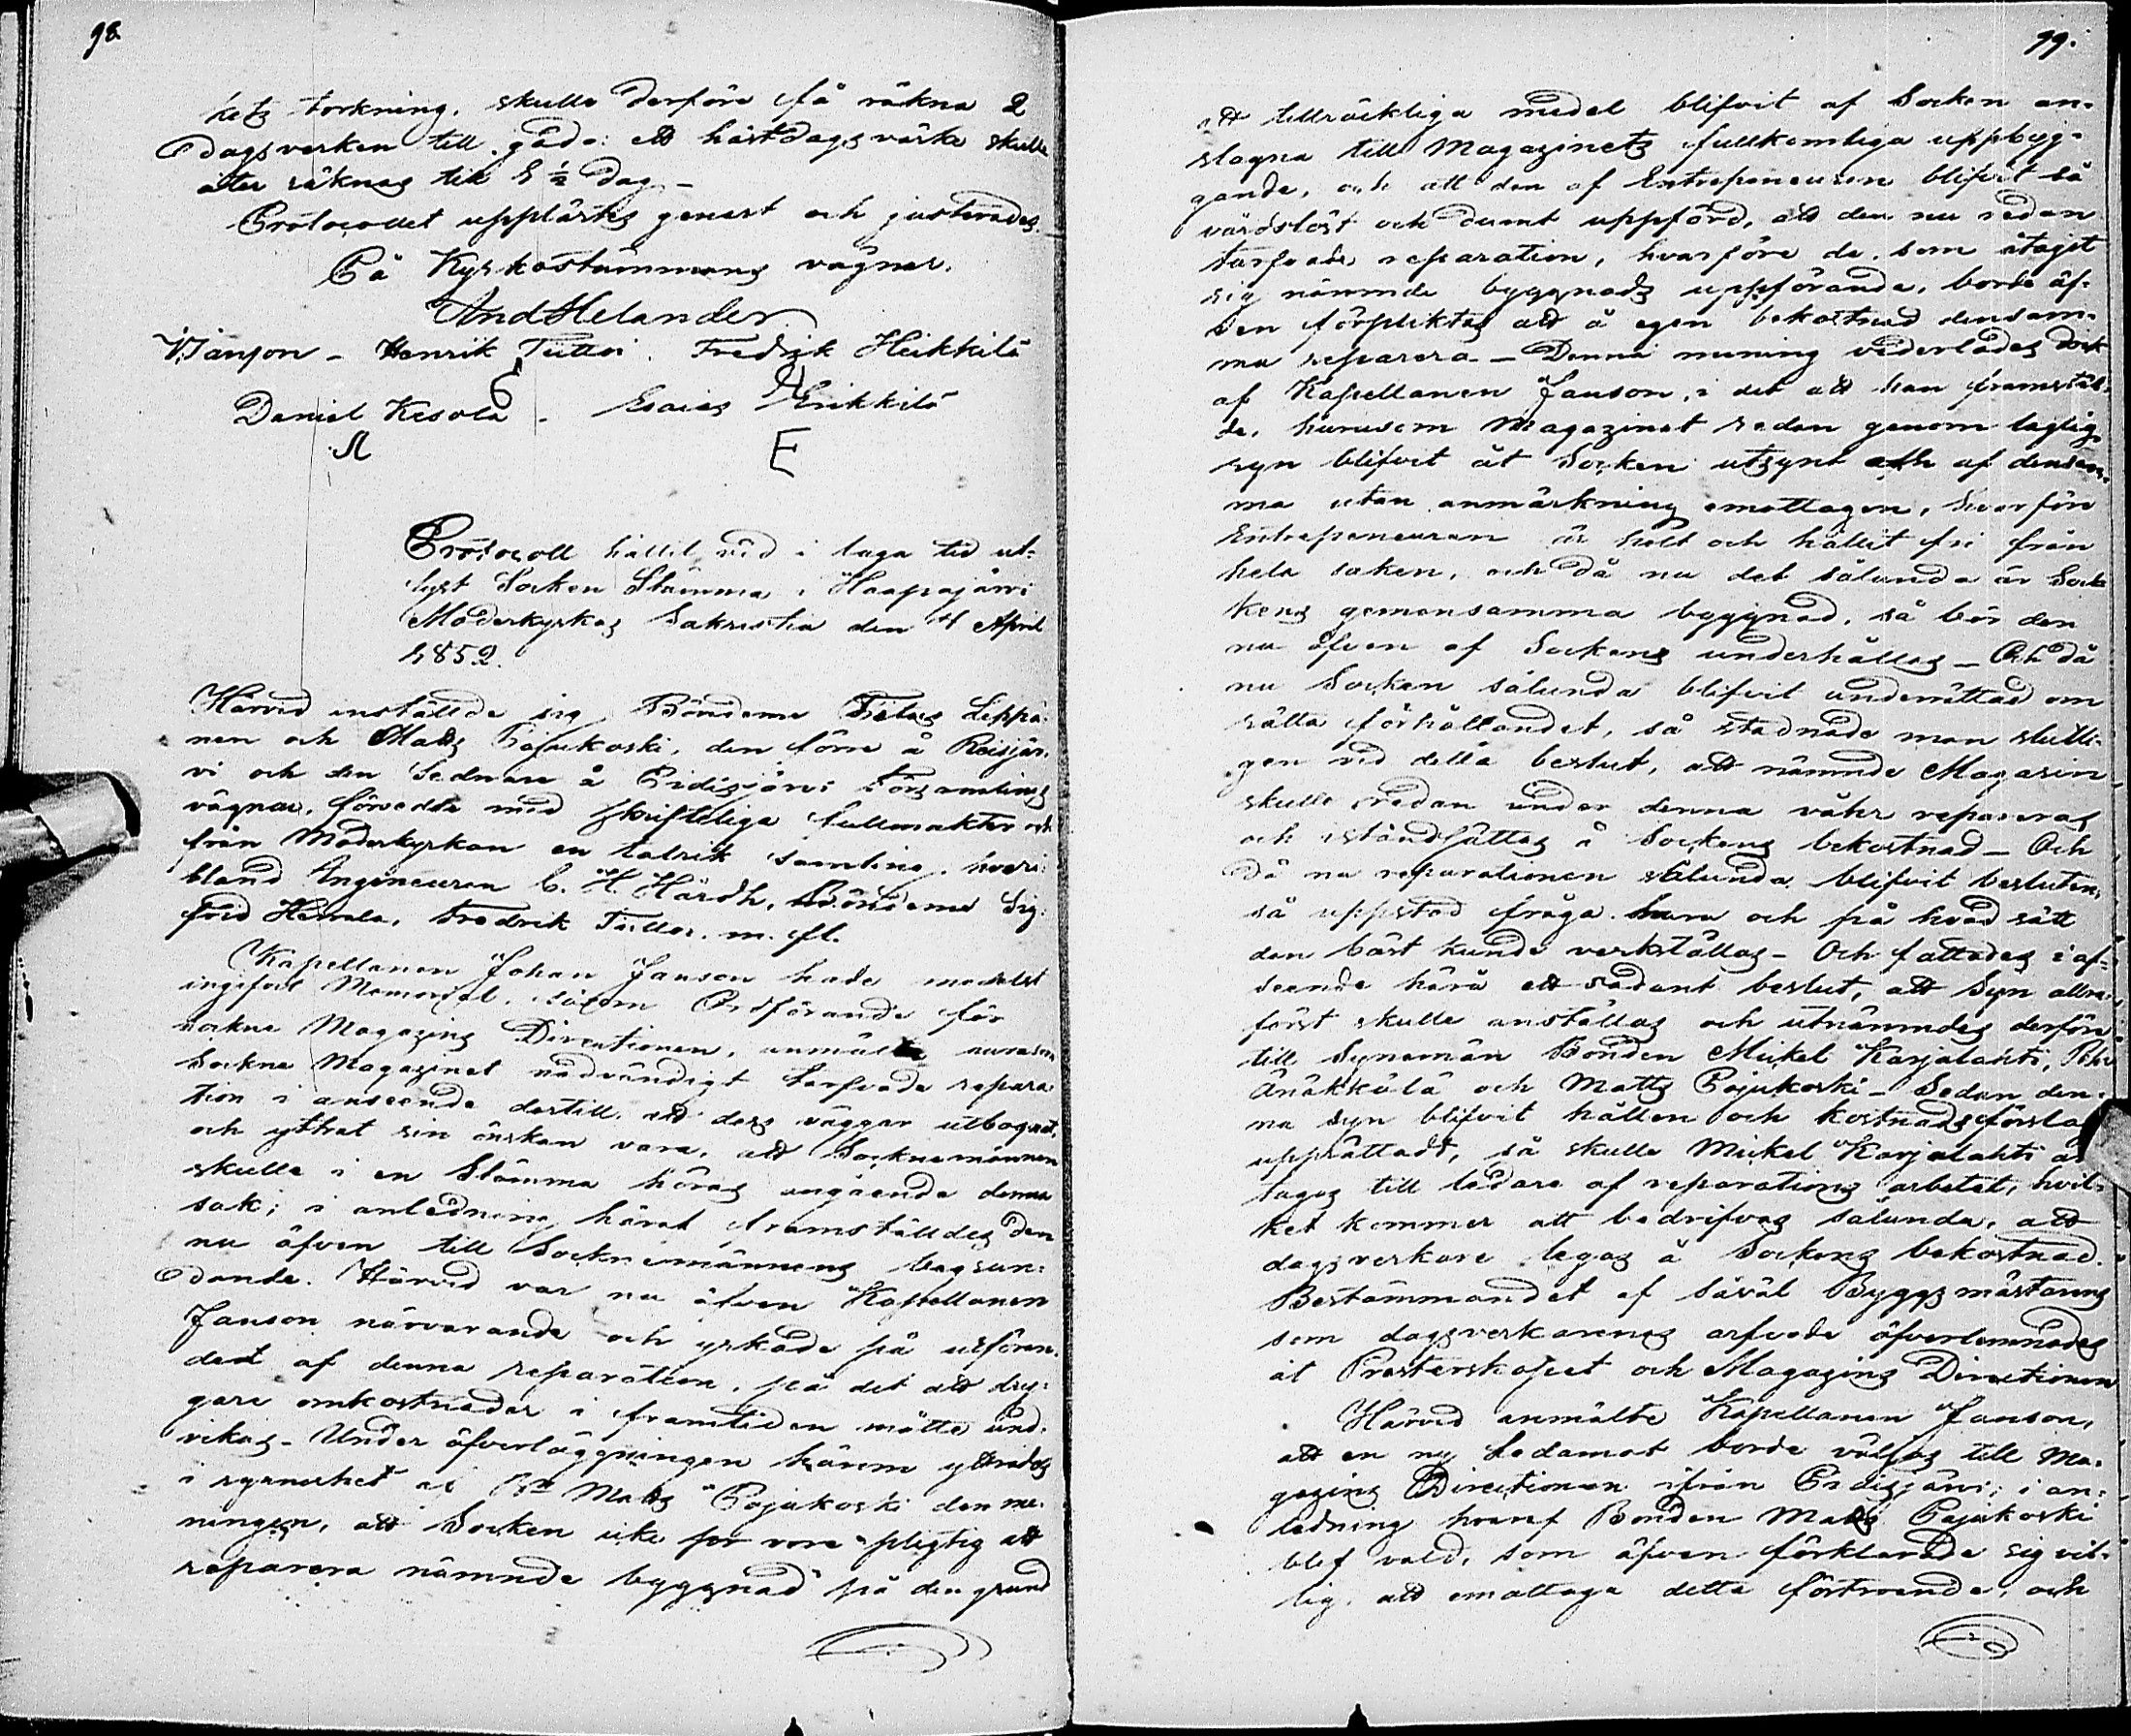 98.
hets torkning, skulle derföre få räkna 2
dagsverken till godo: ett hästdagsvärke skulle
åter räknas till 1 1/2 dag –
Protocollet upplästes genast och justerades.
På Kyrkostämmans vägnar.
And Helander
Janson – Henrik Tuttoi. Fredrik Heikkilä
Daniel Kesola – Esaias Erikkilä
E
Protocoll hållit vid i laga tid ut-
lyst Socken Stämma i Haapajärvi
Moderkyrkas Sakristia den 4 April
1852.
Härvid inställde sig Bönderne Leppä-
nen och Matts Pajukoski, den förre å Reisjär-
vi och den sednare å Pidisjärvi Församlings
vägnar, försedde med skrifteliga fullmakter och
från Moderkyrkan en talrik samling, hvari-
bland Ingenieuren C. H. Hårdh, Bönderne Sig-
frid Fredrik m. fl.
Kapellanen Johan Janson hade medelst
ingifvit Memorial, såsom Ordförande för
sockne Magazins Directionen, anmält hurusom
Sockne Magazinet nödvändigt tarfvade repara
tion i anseende dertill att dess väggar utbognat,
och yttrat sin önskan vara, att Socknemännen
skulle i en Stämma höras angående denna
sak; i anledning häraf framställdes den
nu äfven till Socknemännens begrun-
dande. Härvid var nu äfven Kapellanen
Janson närvarande och yrkade på utföran-
det af denna reparation, på det att dry-
gare omkostnader i framtiden måtte und-
vikas – Under öfverläggningen härom yttrades
i synnerhet af Bn Matts Pajukoski den me-
ningen, att Socken icke vore pligtig att
reparera nämnde byggnad på den grund
99.
att tillräckliga medel blifvit af Socken an-
slagna till Magazinets fullkomliga uppbyg-
gande, och att den af Entrepeneuren blifvit så
vårdslöst och dumt uppförd, att den nu redan
tarfvade reparation, hvarföre de, som åtagit
sig nämnde byggnads uppförande, borde äf-
ven förpliktas att å egen bekostnad densam-
ma reparera – Denna mening vederlades dock
af Kapellanen Janson, i det att han framstäl-
de, hurusom Magazinet redan genom laglig
syn blifvit åt Socken utsynt och af densam-
ma utan anmärkning emottagen, hvarföre
Entrepeneuren är helt och hållit fri från
hela saken, och då nu det sålunda är Sock
kens gemensamma byggnad, så bör den
nu äfven af Sockens underhållas – Och då
nu Socken sålunda blifvit underrättad om
rätta förhållandet, så stadnade man slutli-
gen vid detta beslut, att nämnde Magasin
skulle redan under denna vähr repareras
och iståndsättas å Sockens bekostnad – Och
Då nu reparationen sålunda blifvit besluten,
så uppstod fråga huru och på hvad sätt
den bäst kunde verkställas – Och fattades i af-
seende härå ett sådant beslut, att Syn allra-
först skulle anställas och utnämndes derföre
till Synemän Bonden Mickel Karjalahti, Pehr
Änäkkälä och Matts Pajukoski – Sedan den-
na syn blifvit hållen och kostnadsförslag
upprättadt, så skulle Mickel Karjalahti an
tagas till ledare af reparations arbetet, hvil-
ket kommer att bedrifvas sålunda, att
dagsverkare legas å Sockens bekostnad.
Bestämmandet af såväl Byggmästarens
som dagsverkarenes arfvode öfverlemnades
åt Presterskapet och Magazins Directionen
Härvid anmälte Kapellanen Janson,
att en ny Ledamot borde väljas till Ma-
gazins Directionen ifrån Pidisjärvi; i an-
ledning hvaraf Bonden Matts Pajukoski
blef vald, som äfven förklarade sig vil-
lig, att emottaga detta förtroende, och